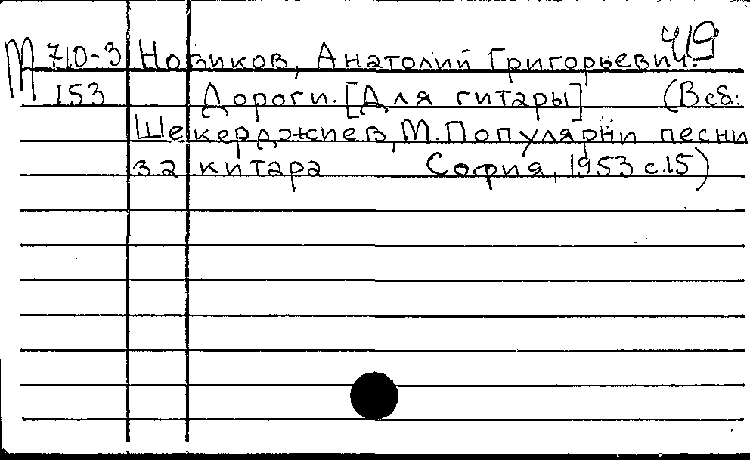 М 710-3 Новиков, Анатолий Григорьевич.
153 Дороги. [Для гитары] (В сб.:
Шекерджиев, М. Популярни песни
за китара София, 1953 с.15)